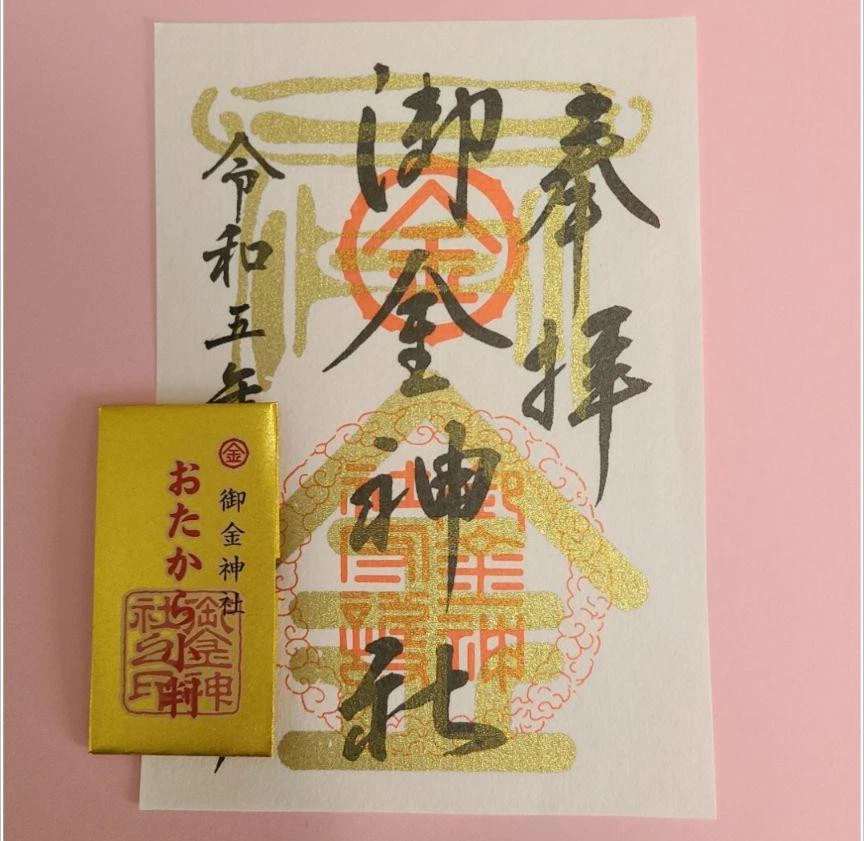 奉拝
金
御金神社
御金神社
令和五年
金
御金神社
おたから小判
御金神社之印